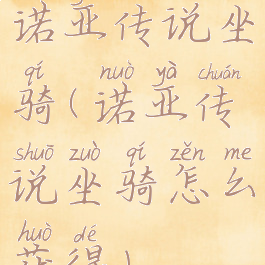 诺亚传说坐
qí nuò yà chuán
骑(诺亚传
shuō zuò qí zěn me
说坐骑怎么
huò dé
获得)